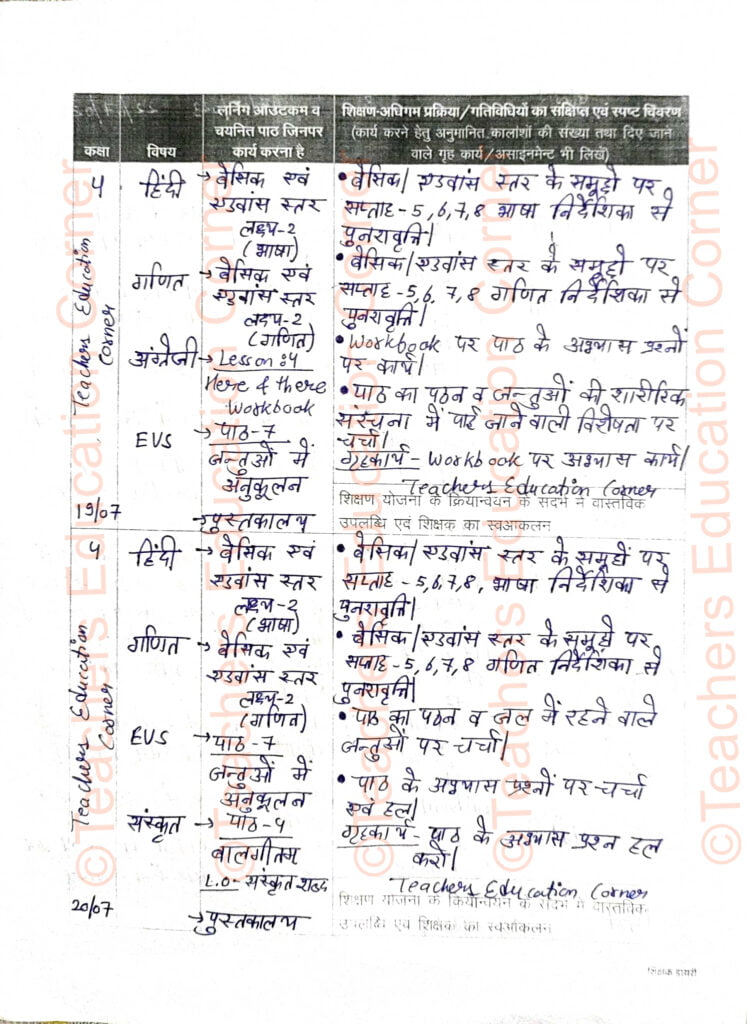 कक्षा
विषय
लर्निंग ऑउटकम व
चयनित पाठ जिनपर
कार्य करना है
शिक्षण-अधिगम प्रक्रिया/गतिविधियों का संक्षिप्त एवं स्पष्ट विवरण
(कार्य करने हेतु अनुमानित कालांशों की संख्या तथा दिए जाने
वाले गृह कार्य/असाइनमेंट भी लिखें)
५ हिंदी → बेसिक एवं
एडवांस स्तर
लक्ष्य-2
(भाषा)
• बेसिक/एडवांस स्तर के समूहों पर
सप्ताह-5,6,7,8 भाषा निर्देशिका से
पुनरावृत्ति।
गणित → बेसिक एवं
एडवांस स्तर
लक्ष्य-2
(गणित)
• बेसिक/एडवांस स्तर के समूहों पर
सप्ताह-5,6,7,8 गणित निर्देशिका से
पुनरावृत्ति।
अंग्रेजी → Lesson:4
Here & there
Workbook
• Workbook पर पाठ के अभ्यास प्रश्नों
पर कार्य।
EVS → पाठ-7
जन्तुओं में
अनुकूलन
• पाठ का पठन व जन्तुओं की शारीरिक
संरचना में पाई जाने वाली विशेषता पर
चर्चा।
गृहकार्य- Workbook पर अभ्यास कार्य।
Teachers Education Corner
शिक्षण योजना के क्रियान्वयन के संदर्भ में वास्तविक
उपलब्धि एवं शिक्षक का स्वआकलन
19/07
→ पुस्तकालय
Teachers Education
Corner
५ हिंदी → बेसिक एवं
एडवांस स्तर
लक्ष्य-2
(भाषा)
• बेसिक/एडवांस स्तर के समूहों पर
सप्ताह-5,6,7,8, भाषा निर्देशिका से
पुनरावृत्ति।
गणित → बेसिक एवं
एडवांस स्तर
लक्ष्य-2
(गणित)
• बेसिक/एडवांस स्तर के समूहों पर
सप्ताह-5,6,7,8 गणित निर्देशिका से
पुनरावृत्ति।
EVS → पाठ-7
जन्तुओं में
अनुकूलन
• पाठ का पठन व जल में रहने वाले
जन्तुओं पर चर्चा।
• पाठ के अभ्यास प्रश्नों पर चर्चा
एवं हल।
संस्कृत → पाठ-५
बालगीतम्
L.O- संस्कृत शब्द
गृहकार्य- पाठ के अभ्यास प्रश्न हल
करो।
Teachers Education Corner
शिक्षण योजना के क्रियान्वयन के संदर्भ में वास्तविक
उपलब्धि एवं शिक्षक का स्वआकलन
20/07
→ पुस्तकालय
Teachers Education
Corner
शिक्षक डायरी
©Teachers Education Corner
©Teachers Education Corner
©Teachers Education Corner
©Teachers Education Corner